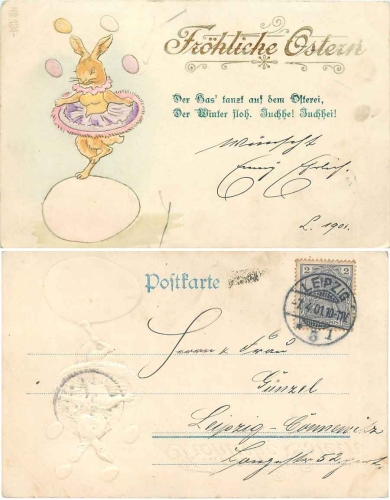 Fröhliche Ostern
Der Has' tanzt auf dem Osterei,
Der Winter floh. Juchhe! Juchhei!
wünscht
Ehrlich.
L. 1901.
Postkarte
LEIPZIG
4.01.10-11V.
Herrn & Frau
Günzel
Leipzig-Connewitz
Langestr 52